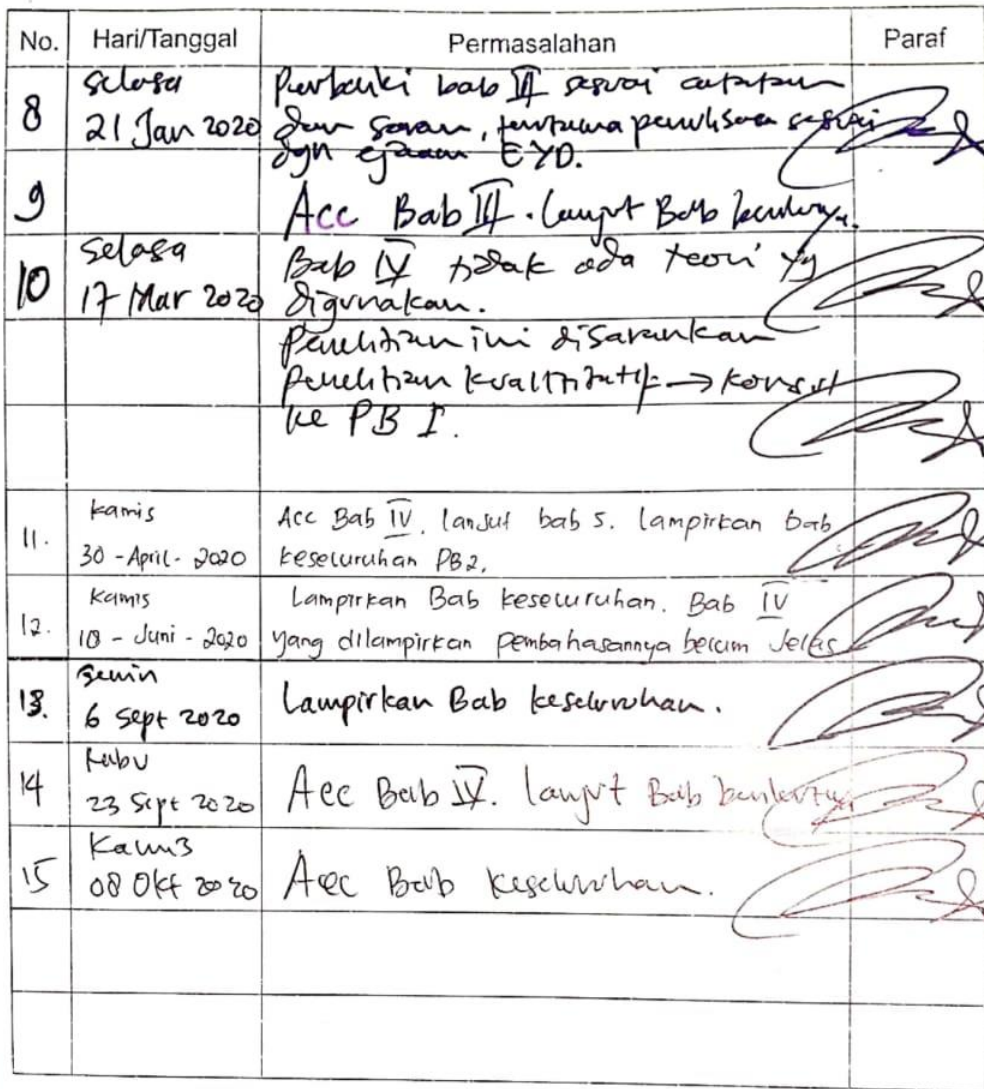 No. Hari/Tanggal Permasalahan Paraf
8 Selasa 21 Jan 2020
Perbaiki bab III sesuai catatan
dan saran, terutama penulisan sesuai
dgn ejaan EYD.
9 Acc Bab III. lanjut Bab berikutnya.
10 Selasa 17 Mar 2020
Bab IV tidak ada teori yg
digunakan.
Penelitian ini disarankan
penelitian kualititatif → konsul
ke PB I.
11. Kamis 30 - April - 2020
Acc Bab IV. lanjut bab 5. lampirkan bab
keseluruhan PB2.
12. Kamis - Juni - 2020
Lampirkan Bab keseluruhan. Bab IV
yang dilampirkan pembahasannya belum Jelas
13. Senin 6 Sept 2020
Lampirkan Bab keseluruhan.
14 Rabu 23 Sept 2020
Acc Bab IV. lanjut Bab berikutnya
15 Kamis 08 Okt 2020
Acc Bab keseluruhan.